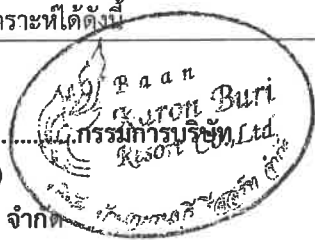 ราะห์ได้ดังนี้
Baan
Karon Buri
Resort Co.,Ltd.
..........กรรมการบริษัท
)
จำกัด